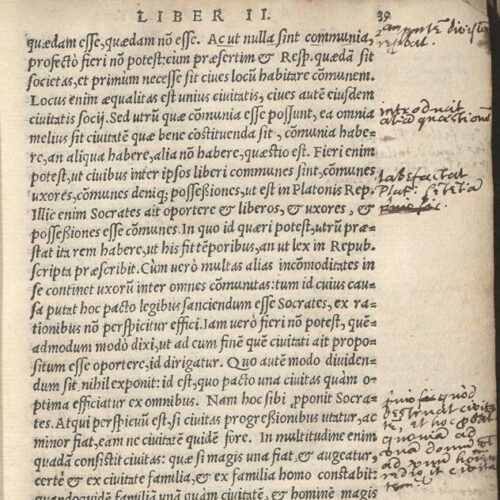 LIBER II. 39
quædam esse, quædam nõ esse. Ac ut nulla sint communia,
profecto fieri nõ potest: cum præsertim & Resp. quædã sit
societas, et primum necesse sit ciues locũ habitare cõmunem.
Locus enim æqualitas est unius ciuitatis, ciues autẽ eiusdem
ciuitatis socij. Sed utrũ quæ cõmunia esse possunt, ea omnia
melius sit ciuitatẽ quæ bene cõstituenda sit, cõmunia habe=
re, an aliqua habere, alia nõ habere, quæstio est. Fieri enim
potest, ut ciuibus inter ipsos liberi communes sint, cõmunes
uxores, cõmunes deniq; possessiones, ut est in Platonis Rep.
Illic enim Socrates ait oportere & liberos, & uxores, &
possessiones esse cõmunes. In quo id quæri potest, utrũ præ=
stat ita rem habere, ut his fit tẽporibus, an ut lex in Repub.
scripta præscribit. Cùm uerò multas alias incõmoditates in
se continet uxorũ inter omnes cõmunitas: tum id cuius cau=
sa putat hoc pacto legibus sanciendum esse Socrates, ex ra=
tionibus nõ perspicitur effici. Iam uerò fieri nõ potest, quẽ=
admodum modò dixi, ut ad cum finẽ quẽ ciuitati ait propo=
situm esse oportere, id dirigatur. Quo autẽ modo diuiden=
dum sit, nihil exponit: id est, quo pacto una ciuitas quàm o=
ptima efficiatur ex omnibus. Nam hoc sibi ꝓponit Socra=
tes. Atqui perspicuũ est, si ciuitas progreßionibus utatur, ac
minor fiat, eam ne ciuitatẽ quidẽ fore. In multitudine enim
quadã consistit ciuitas: quæ si magis una fiat, & augeatur,
certè & ex ciuitate familia, & ex familia homo constabit:
quandoquidẽ familiã unã quàm ciuitatẽ, & hominẽ magis
introducit
labefactat
Plat. sẽtẽtiã
quòd
ciuita
te, et hoc
quoniã ad